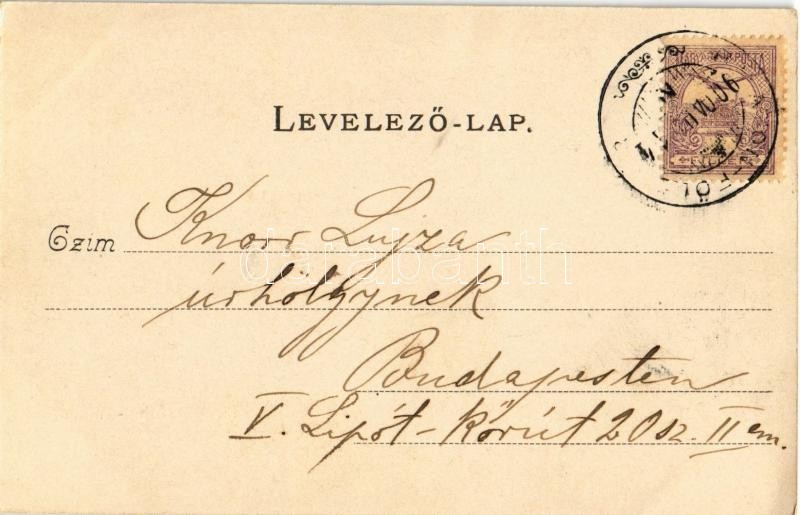 LEVELEZŐ-LAP.
Czim Knorr Lujza
úrhölgynek
Budapesten
V. Lipót-Körút 20 sz. II em.
darabanth